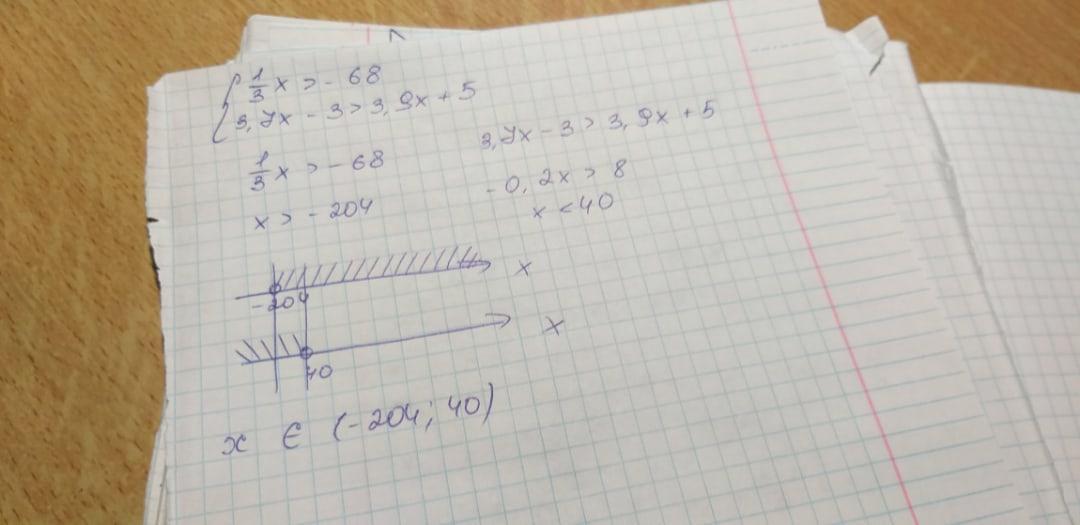 1/3 x > - 68
3,7x - 3 > 3,9x + 5
1/3 x > - 68
x > - 204
3,7x - 3 > 3,9x + 5
- 0,2x > 8
x < 40
x
-204
x
40
x ∈ (-204; 40)